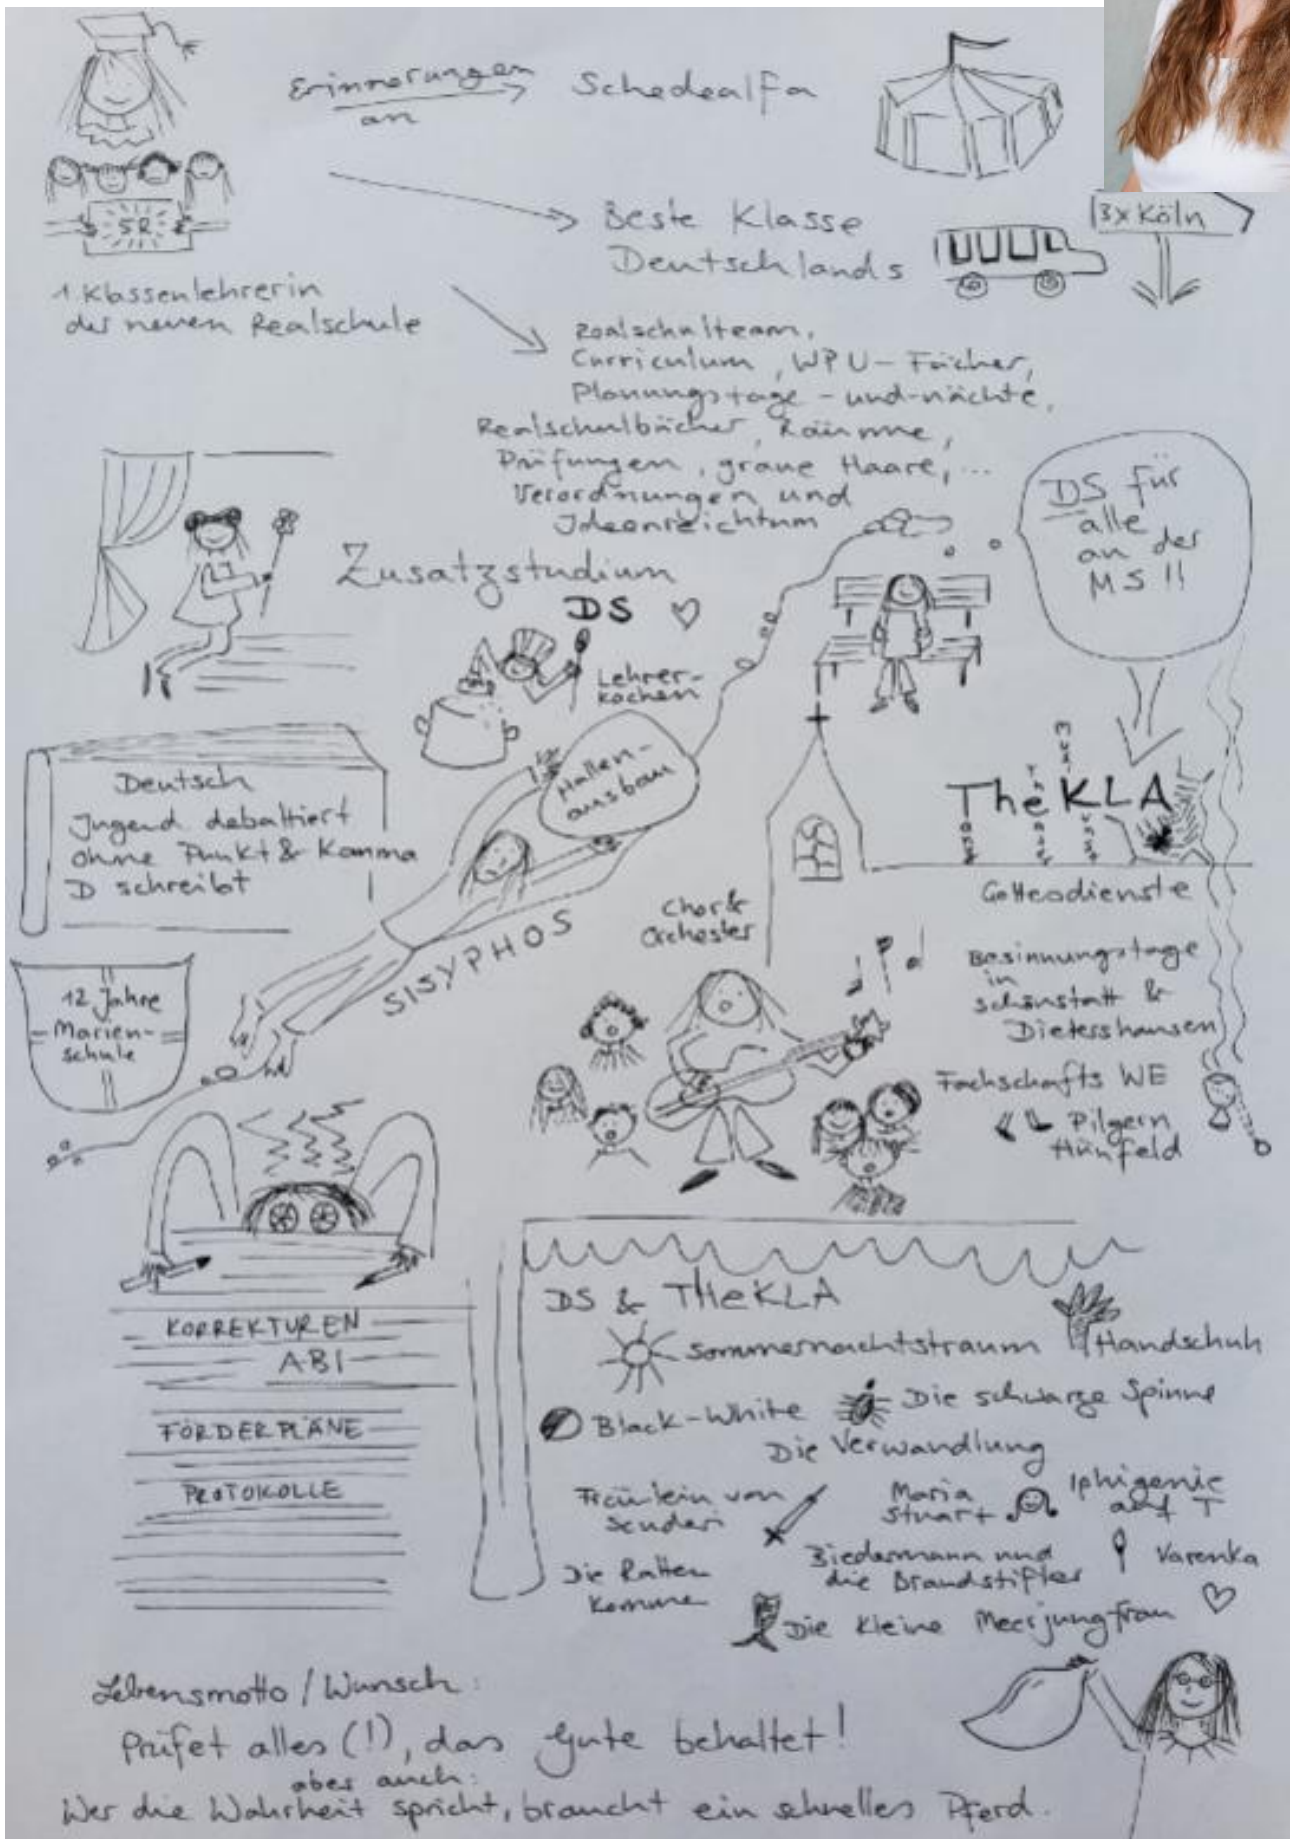 Erinnerungen
an
Schedealfa
5R
Beste Klasse
Deutschlands
3x Köln
1. Klassenlehrerin
der neuen Realschule
Realschulteam,
Curriculum, WPU-Fächer,
Planungstage-und-nächte,
Realschulbücher, Räume,
Prüfungen, graue Haare, ...
Verordnungen und
Ideenreichtum
DS für
alle
an der
MS !!
Zusatzstudium
DS
Lehrer-
kochen
Hallen-
ausbau
SISYPHOS
Deutsch
Jugend debattiert
ohne Punkt & Komma
D schreibt
12 Jahre
Marien-
schule
TheKLA
Chor &
Orchester
Gottesdienste
Besinnungstage
in
Schönstatt &
Dietershausen
Fachschafts WE
Pilgern
Hünfeld
KORREKTUREN
ABI
FÖRDERPLÄNE
PROTOKOLLE
DS & THeKLA
Sommernachtstraum
Handschuh
Black-White
Die schwarze Spinne
Die Verwandlung
Fräulein von
Scuderi
Maria
Stuart
Iphigenie
auf T
Die Ratten
Biedermann und
die Brandstifter
Varenka
Die kleine Meerjungfrau
Lebensmotto / Wunsch:
Prüfet alles (!), das Gute behaltet!
aber auch:
Wer die Wahrheit spricht, braucht ein schnelles Pferd.